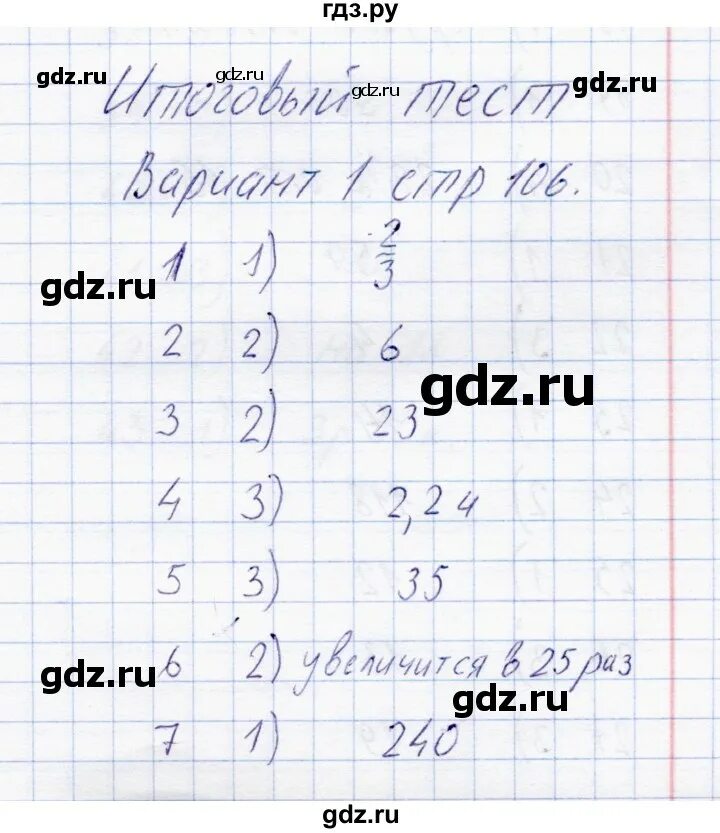 гдз.ру
gdz.ru gdz.ru gdz.ru gdz.ru
Итоговый тест
Вариант 1 стр 106.
1 1) 2/3
gdz.ru
2 2) 6
gdz.ru
3 2) 23
4 3) 2,24
5 3) 35
6 2) увеличится в 25 раз
gdz.ru gdz.ru
7 1) 240
gdz.ru